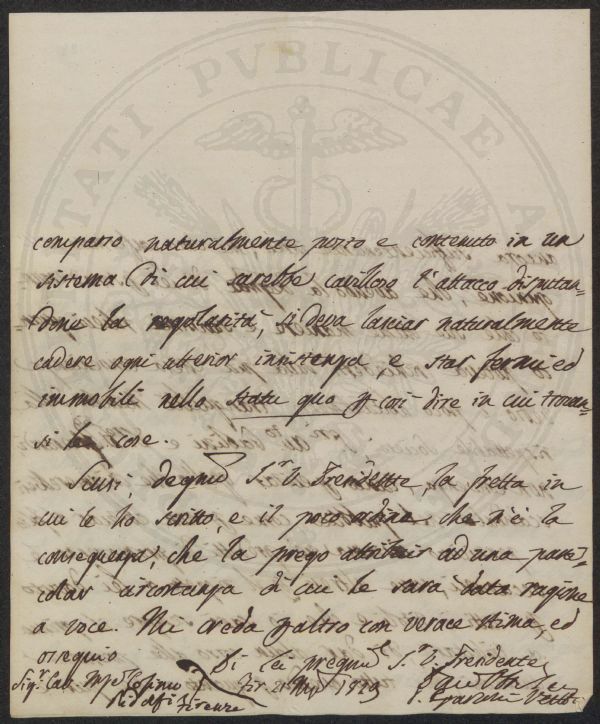 TATI PVBLICAE A
comparso naturalmente posto e contenuto in un
sistema di cui sarebbe cavilloso l'attacco disputan-
done la regolarità, si deva lasciar naturalmente
cadere ogni ulterior insistenza, e star fermi ed
immobili nello statu quo p così dire in cui trovan-
si le cose.
Scusi, degno Sr. V. Presidente, la fretta in
cui le ho scritto, e il poco ordine che n'è la
conseguenza, che la prego attribuir ad una parti-
colar circostanza di cui le sarà data ragione
a voce. Mi creda p altro con verace stima, ed
ossequio
Di Lei pregmo Sr. V. Presidente
Sigr. Cav. Mse Cosimo
Ridolfi Firenze
Fir 21 1829